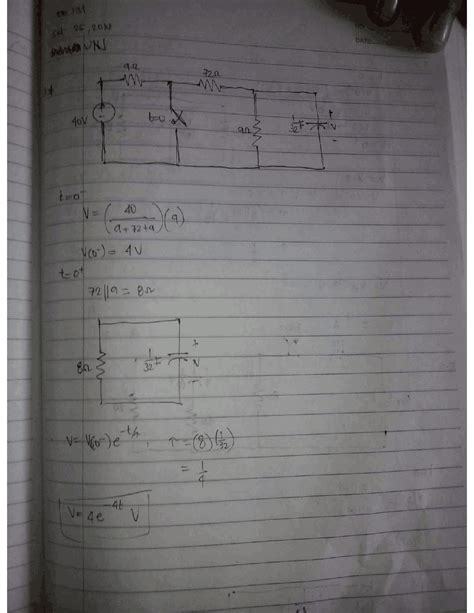 9Ω
72Ω
40V
t=0
9Ω
1/32 F
+
V
-
t=0⁻
V = (40/(9+72+9))(9)
V(0⁻) = 4V
t=0⁺
72||9 = 8Ω
8Ω
1/32 F
+
V
-
V= V(0⁻)e^(-t/τ), τ = (8)(1/32)
= 1/4
V= 4e^(-4t) V